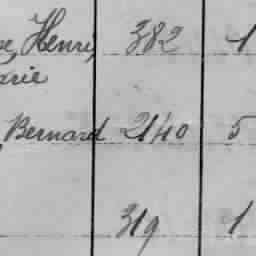 Henri, 382 1
arie
Bernard 2140 5
319 1